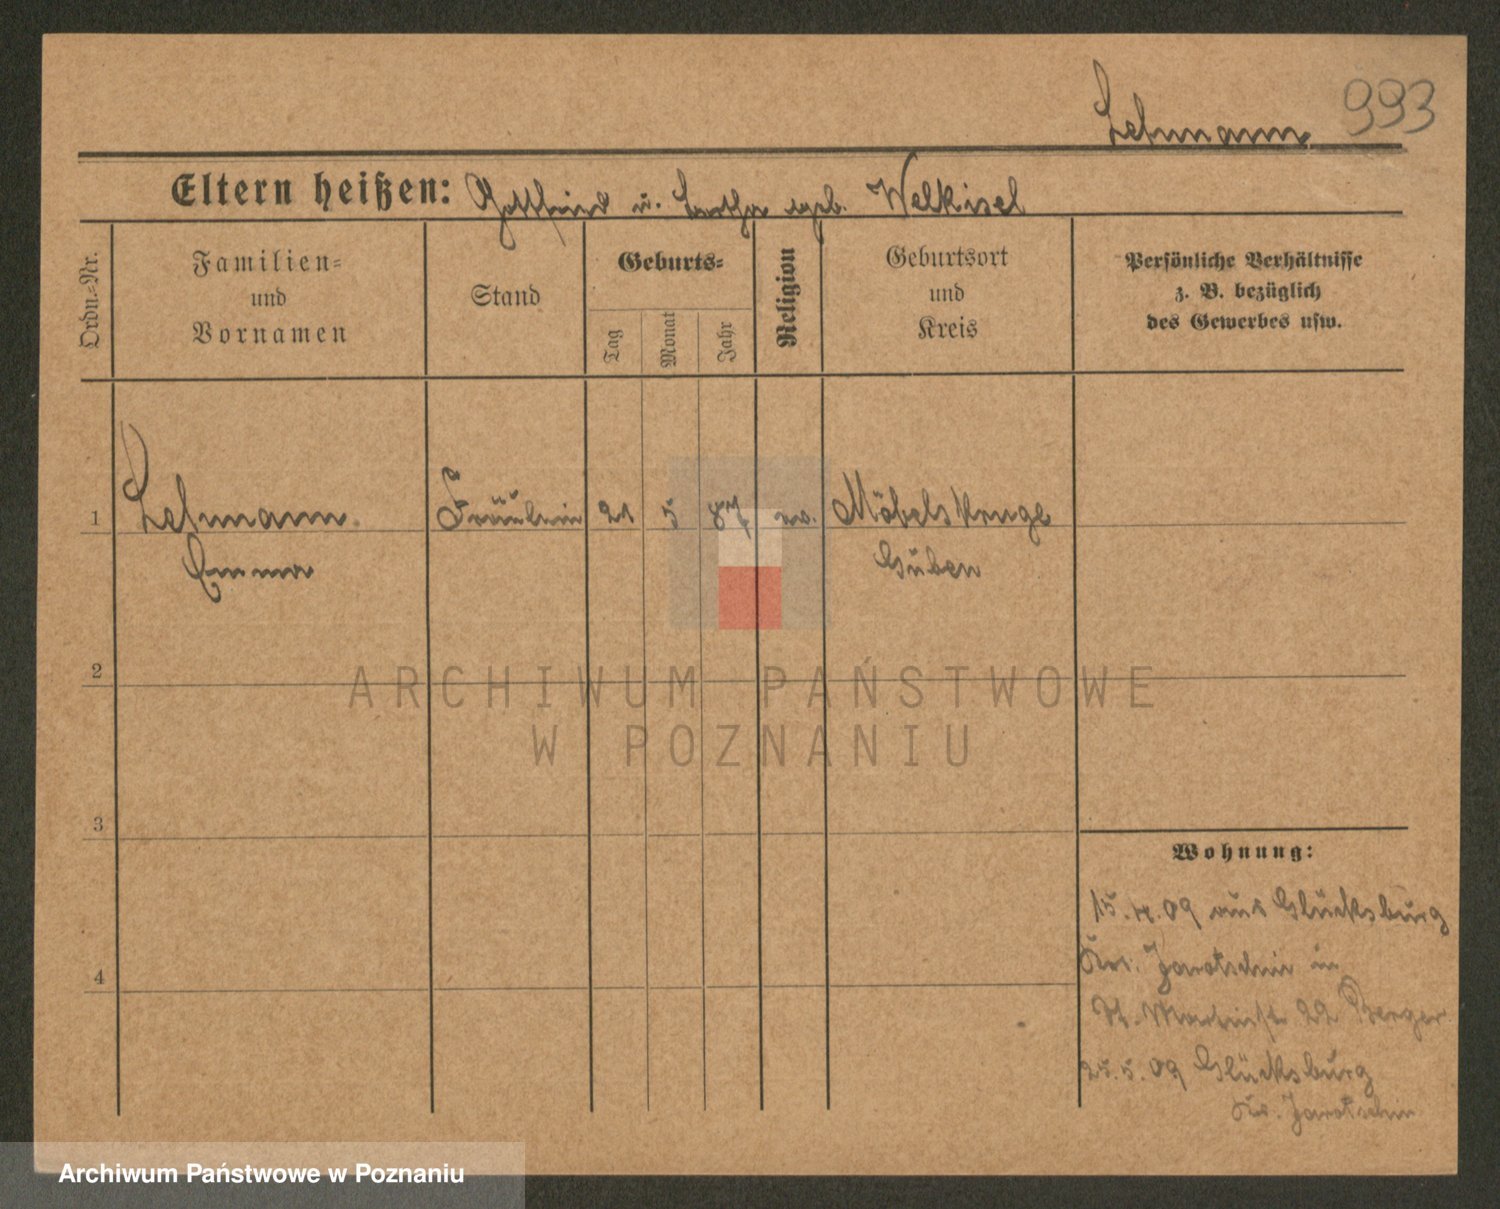 Lehmann 993
Eltern heißen: Gottfried u. geb. Welkisel
Ordn.-Nr.
Familien-
und
Vornamen
Stand
Geburts-
Tag
Monat
Jahr
Religion
Geburtsort
und
Kreis
Persönliche Verhältnisse
z. B. bezüglich
des Gewerbes usw.
1 Lehmann Fräulein 21 5 87 ev. Möbelskruge
Emma Guben
2
3
4
Wohnung:
15.4.09 aus Glücksburg
Kr. Jarotschin in
St. Martinstr 22 Berger
25.5.09 Glücksburg
Kr. Jarotschin
ARCHIWUM PAŃSTWOWE
W POZNANIU
Archiwum Państwowe w Poznaniu